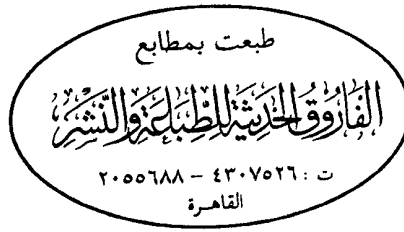 طبعت بمطابع
الفَارُوقُ الحَدِيثَةِ لِلطِّبَاعَةِ وَالنَّشْرِ
ت : ٤٣٠٧٥٢٦ – ٢٠٥٥٦٨٨
القاهرة